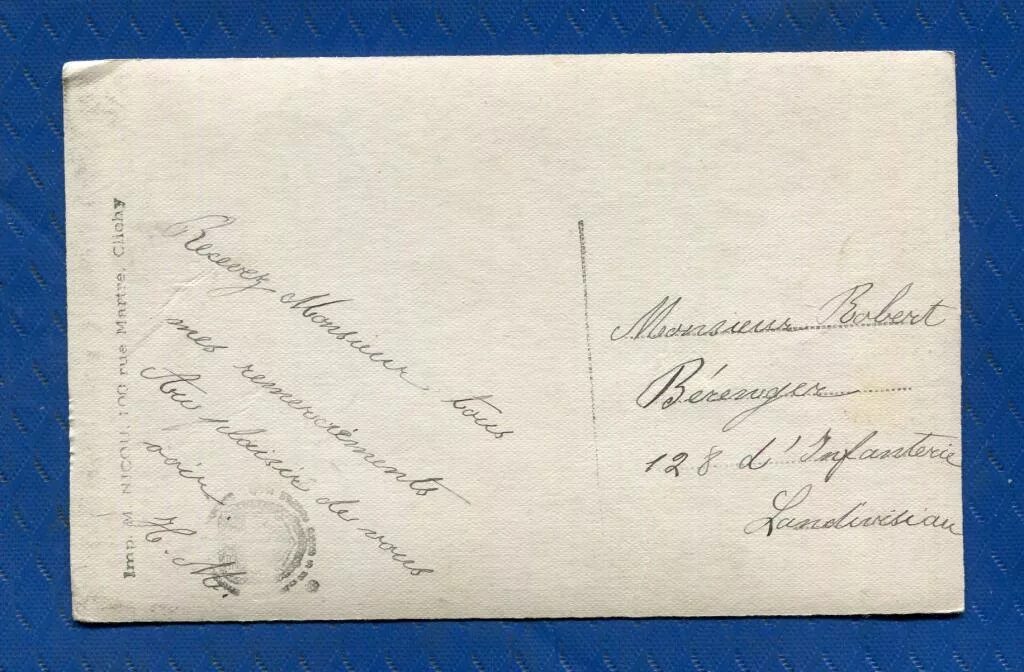 Imp. M NICOLL 100 rue Martre. Clichy
Recevez Monsieur tous
mes remerciements
Au plaisir de vous
voir.
H. M.
Monsieur Robert
Bérenger
128 d'Infanterie
Landivisiau